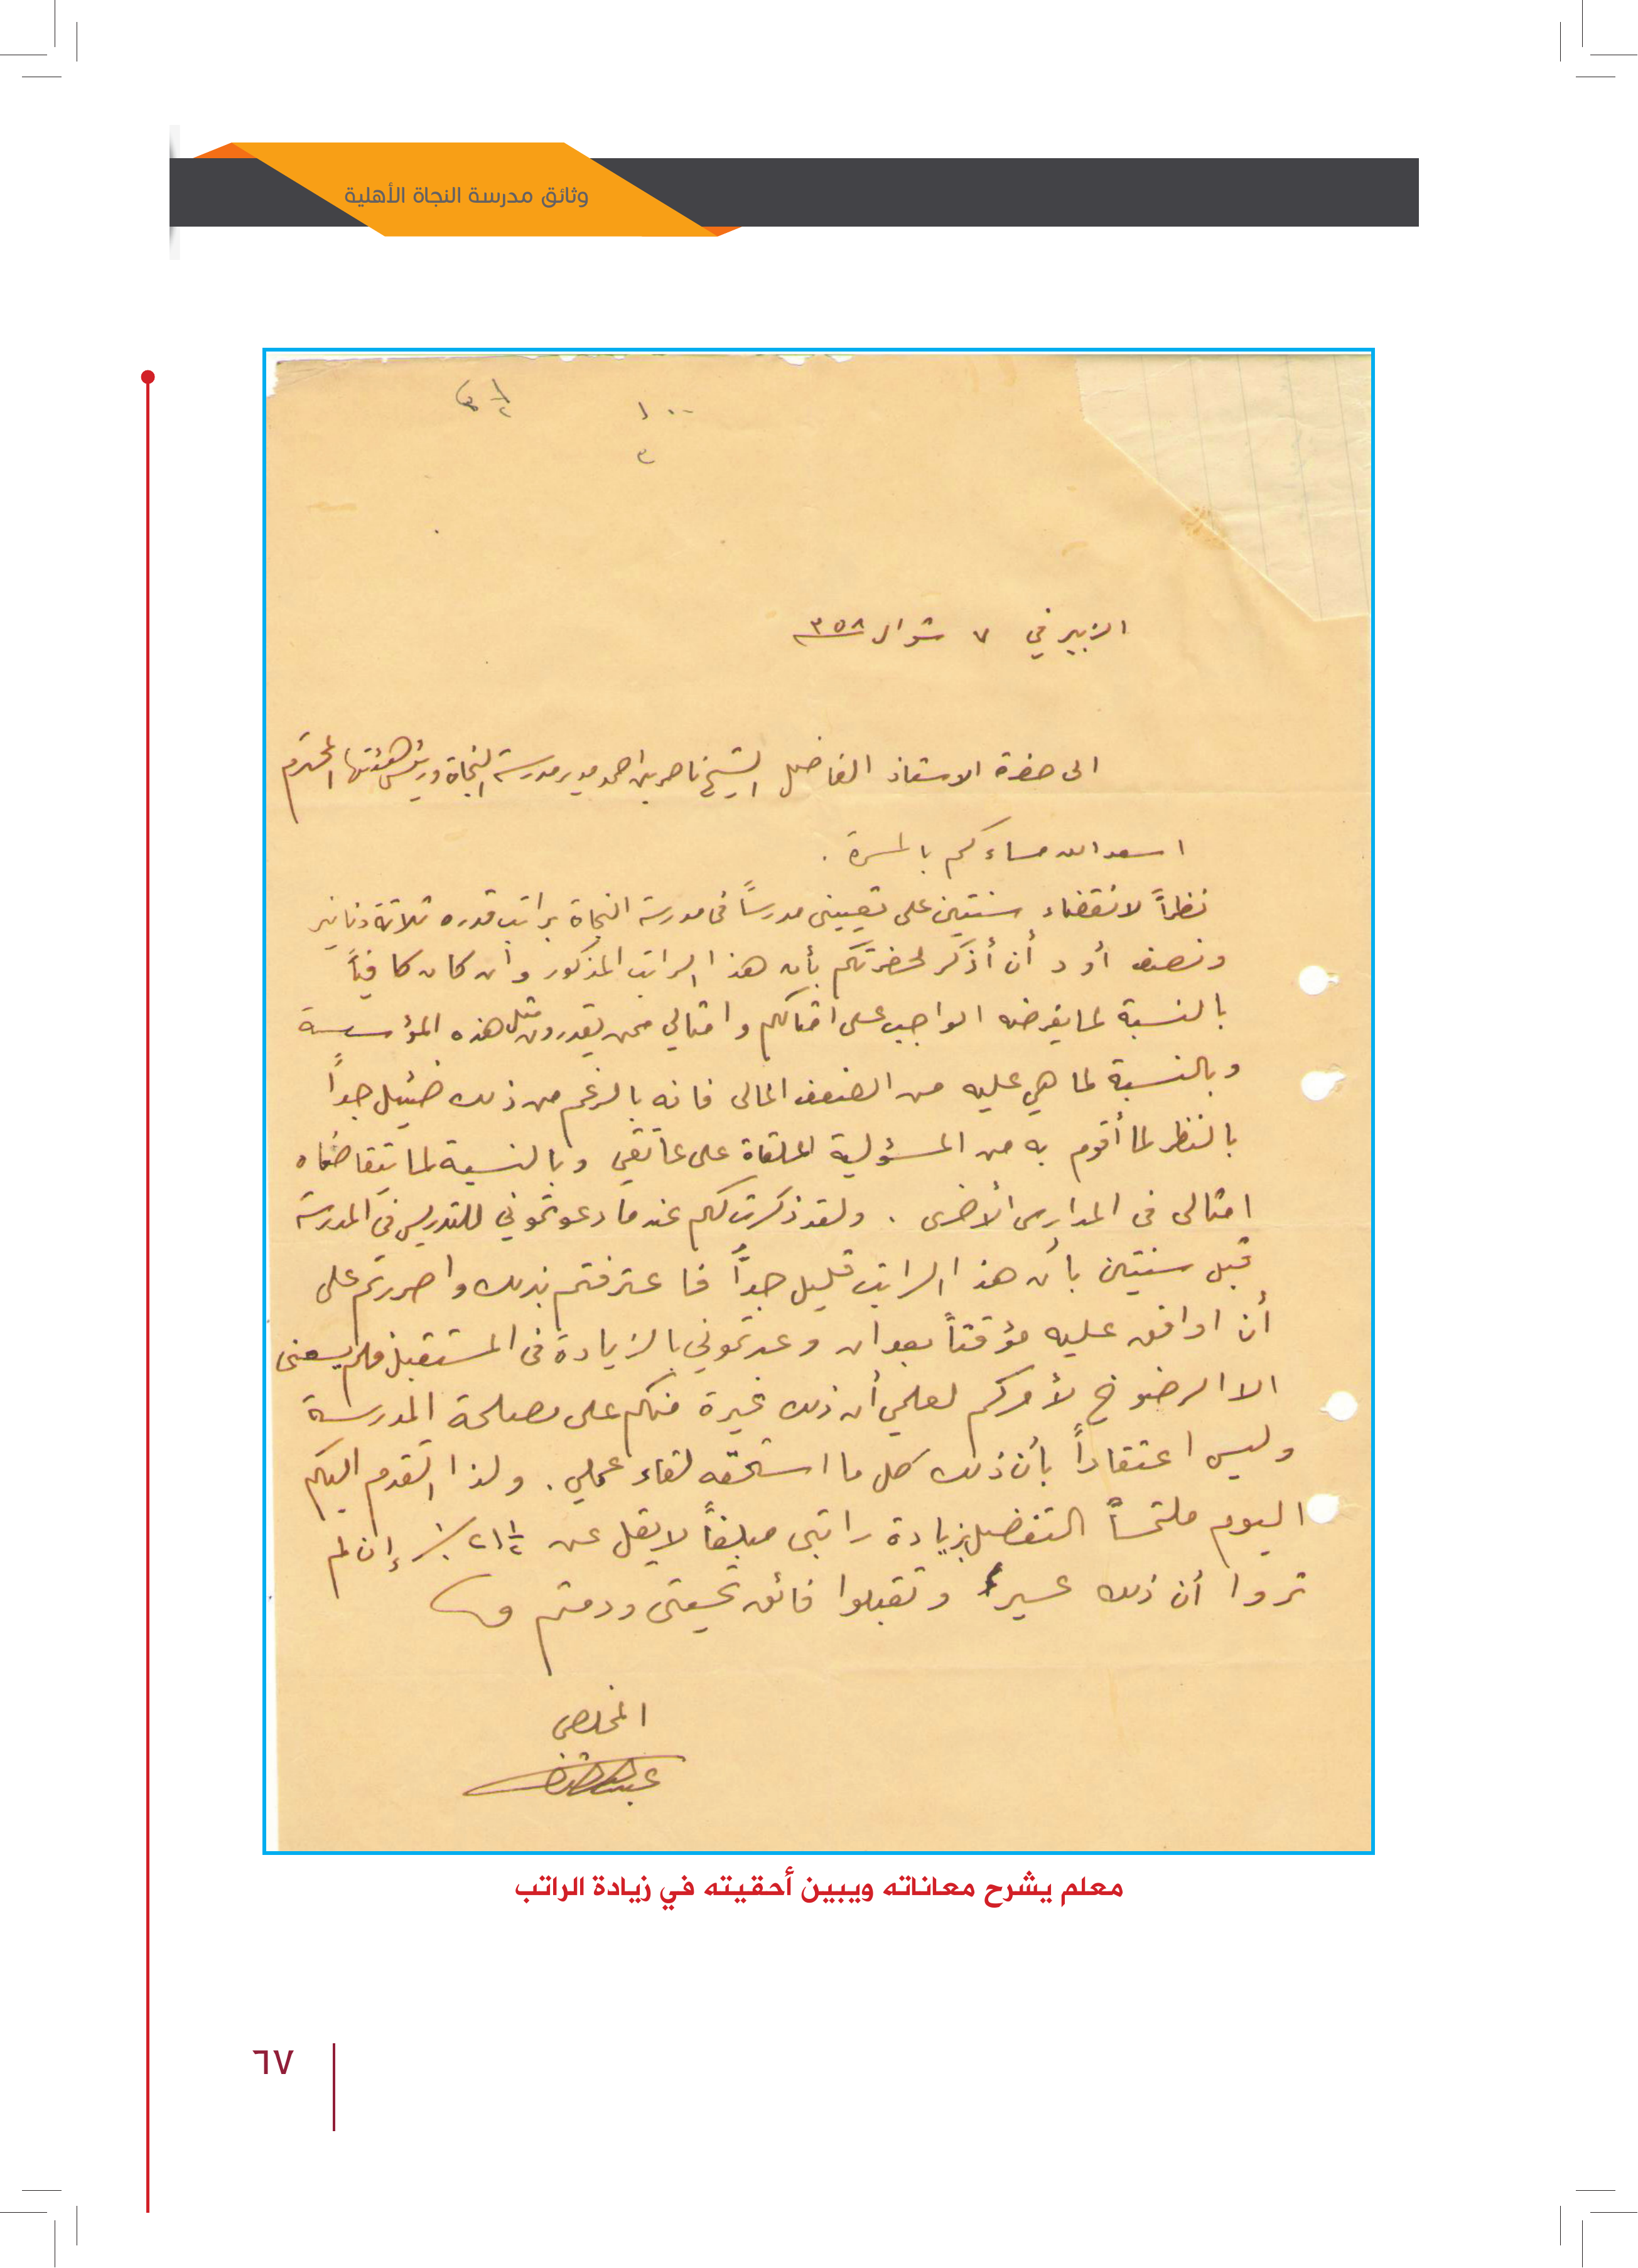 وثائق مدرسة النجاة الأهلية
١٠٠
٣
الزبير في ٧ شوال ٣٥٨
الى حضرة الاستاذ الفاضل الشيخ ناصر بن احمد مدير مدرسة النجاة ورئيس هيئتها المحترم
اسعد الله مساءكم بالمسرة .
نظراً لانقضاء سنتين على تعييني مدرساً في مدرسة النجاة براتب قدره ثلاثة دنانير
ونصف أود أن أذكر لحضرتكم بأن هذا الراتب المذكور وان كان كافياً
بالنسبة لما يفرضه الواجب على امثالكم وامثالي ممن يقدرون مثل هذه المؤسسة
وبالنسبة لما هي عليه من الضعف المالى فانه بالرغم من ذلك ضئيل جداً
بالنظر لما أقوم به من المسؤلية الملقاة على عاتقي وبالنسبة لما يتقاضاه
امثالى فى المدارس الأخرى . ولقد ذكرت لكم عندما دعوتموني للتدريس في المدرسة
قبل سنتين بأن هذا الراتب قليل جداً فاعترفتم بذلك واصررتم على
أن اوافق عليه مؤقتاً بعد ان وعدتموني بالزيادة فى المستقبل فلم يسعنى
الا الرضوخ لأمركم لعلمي أن ذلك غيرة منكم على مصلحة المدرسة
وليس اعتقاداً بأن ذلك كل ما استحقه لقاء عملي . ولذا اتقدم اليكم
اليوم ملتمساً التفضل بزيادة راتبى مبلغاً لا يقل عن إن لم
تروا أن ذلك عسيراً وتقبلوا فائق تحيتى ودمتم
المخلص
معلم يشرح معاناته ويبين أحقيته في زيادة الراتب
٦٧